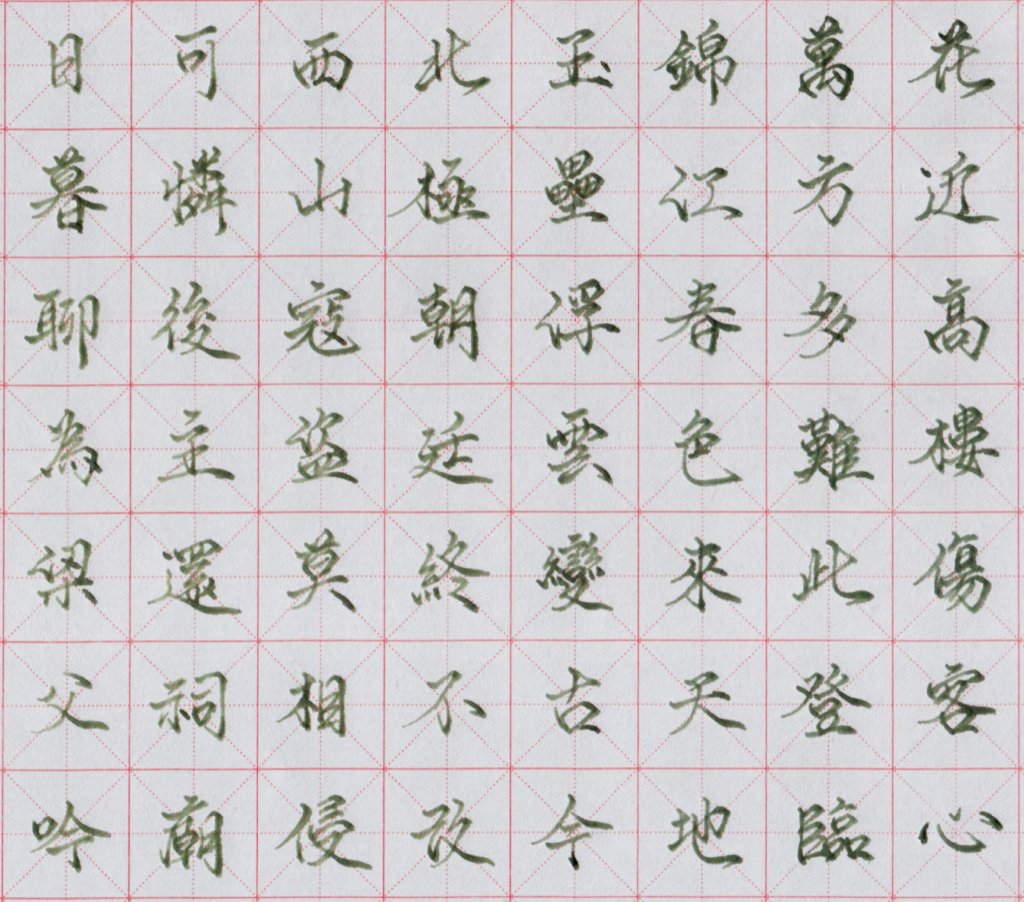 花近高樓傷客心
萬方多難此登臨
錦江春色來天地
玉壘浮雲變古今
北極朝廷終不改
西山寇盜莫相侵
可憐後主還祠廟
日暮聊為梁父吟